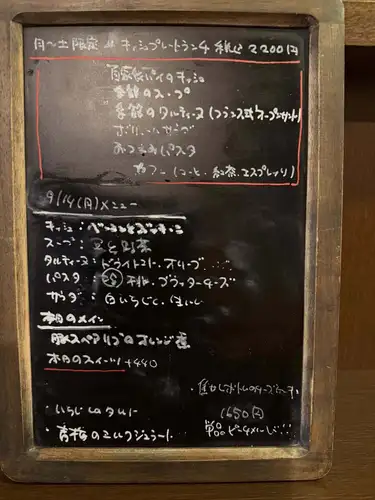 月〜土限定 キッシュプレートランチ 税込 2200円
自家製パイのキッシュ
季節のスープ
季節のタルティーヌ(フランス式オープンサンド)
グリーンサラダ
おつまみパスタ
カフェ(コーヒー、紅茶、エスプレッソ)
9/14(月)メニュー
キッシュ:ベーコンと
スープ:豆と野菜
タルティーヌ:ドライトマト、オリーブ
パスタ ブラッターチーズ
サラダ:白いちじく、
本日のメイン
豚スペアリブのオレンジ煮
本日のスイーツ +440
・いちじくのタルト
・青梅のミルクジェラート
1650円